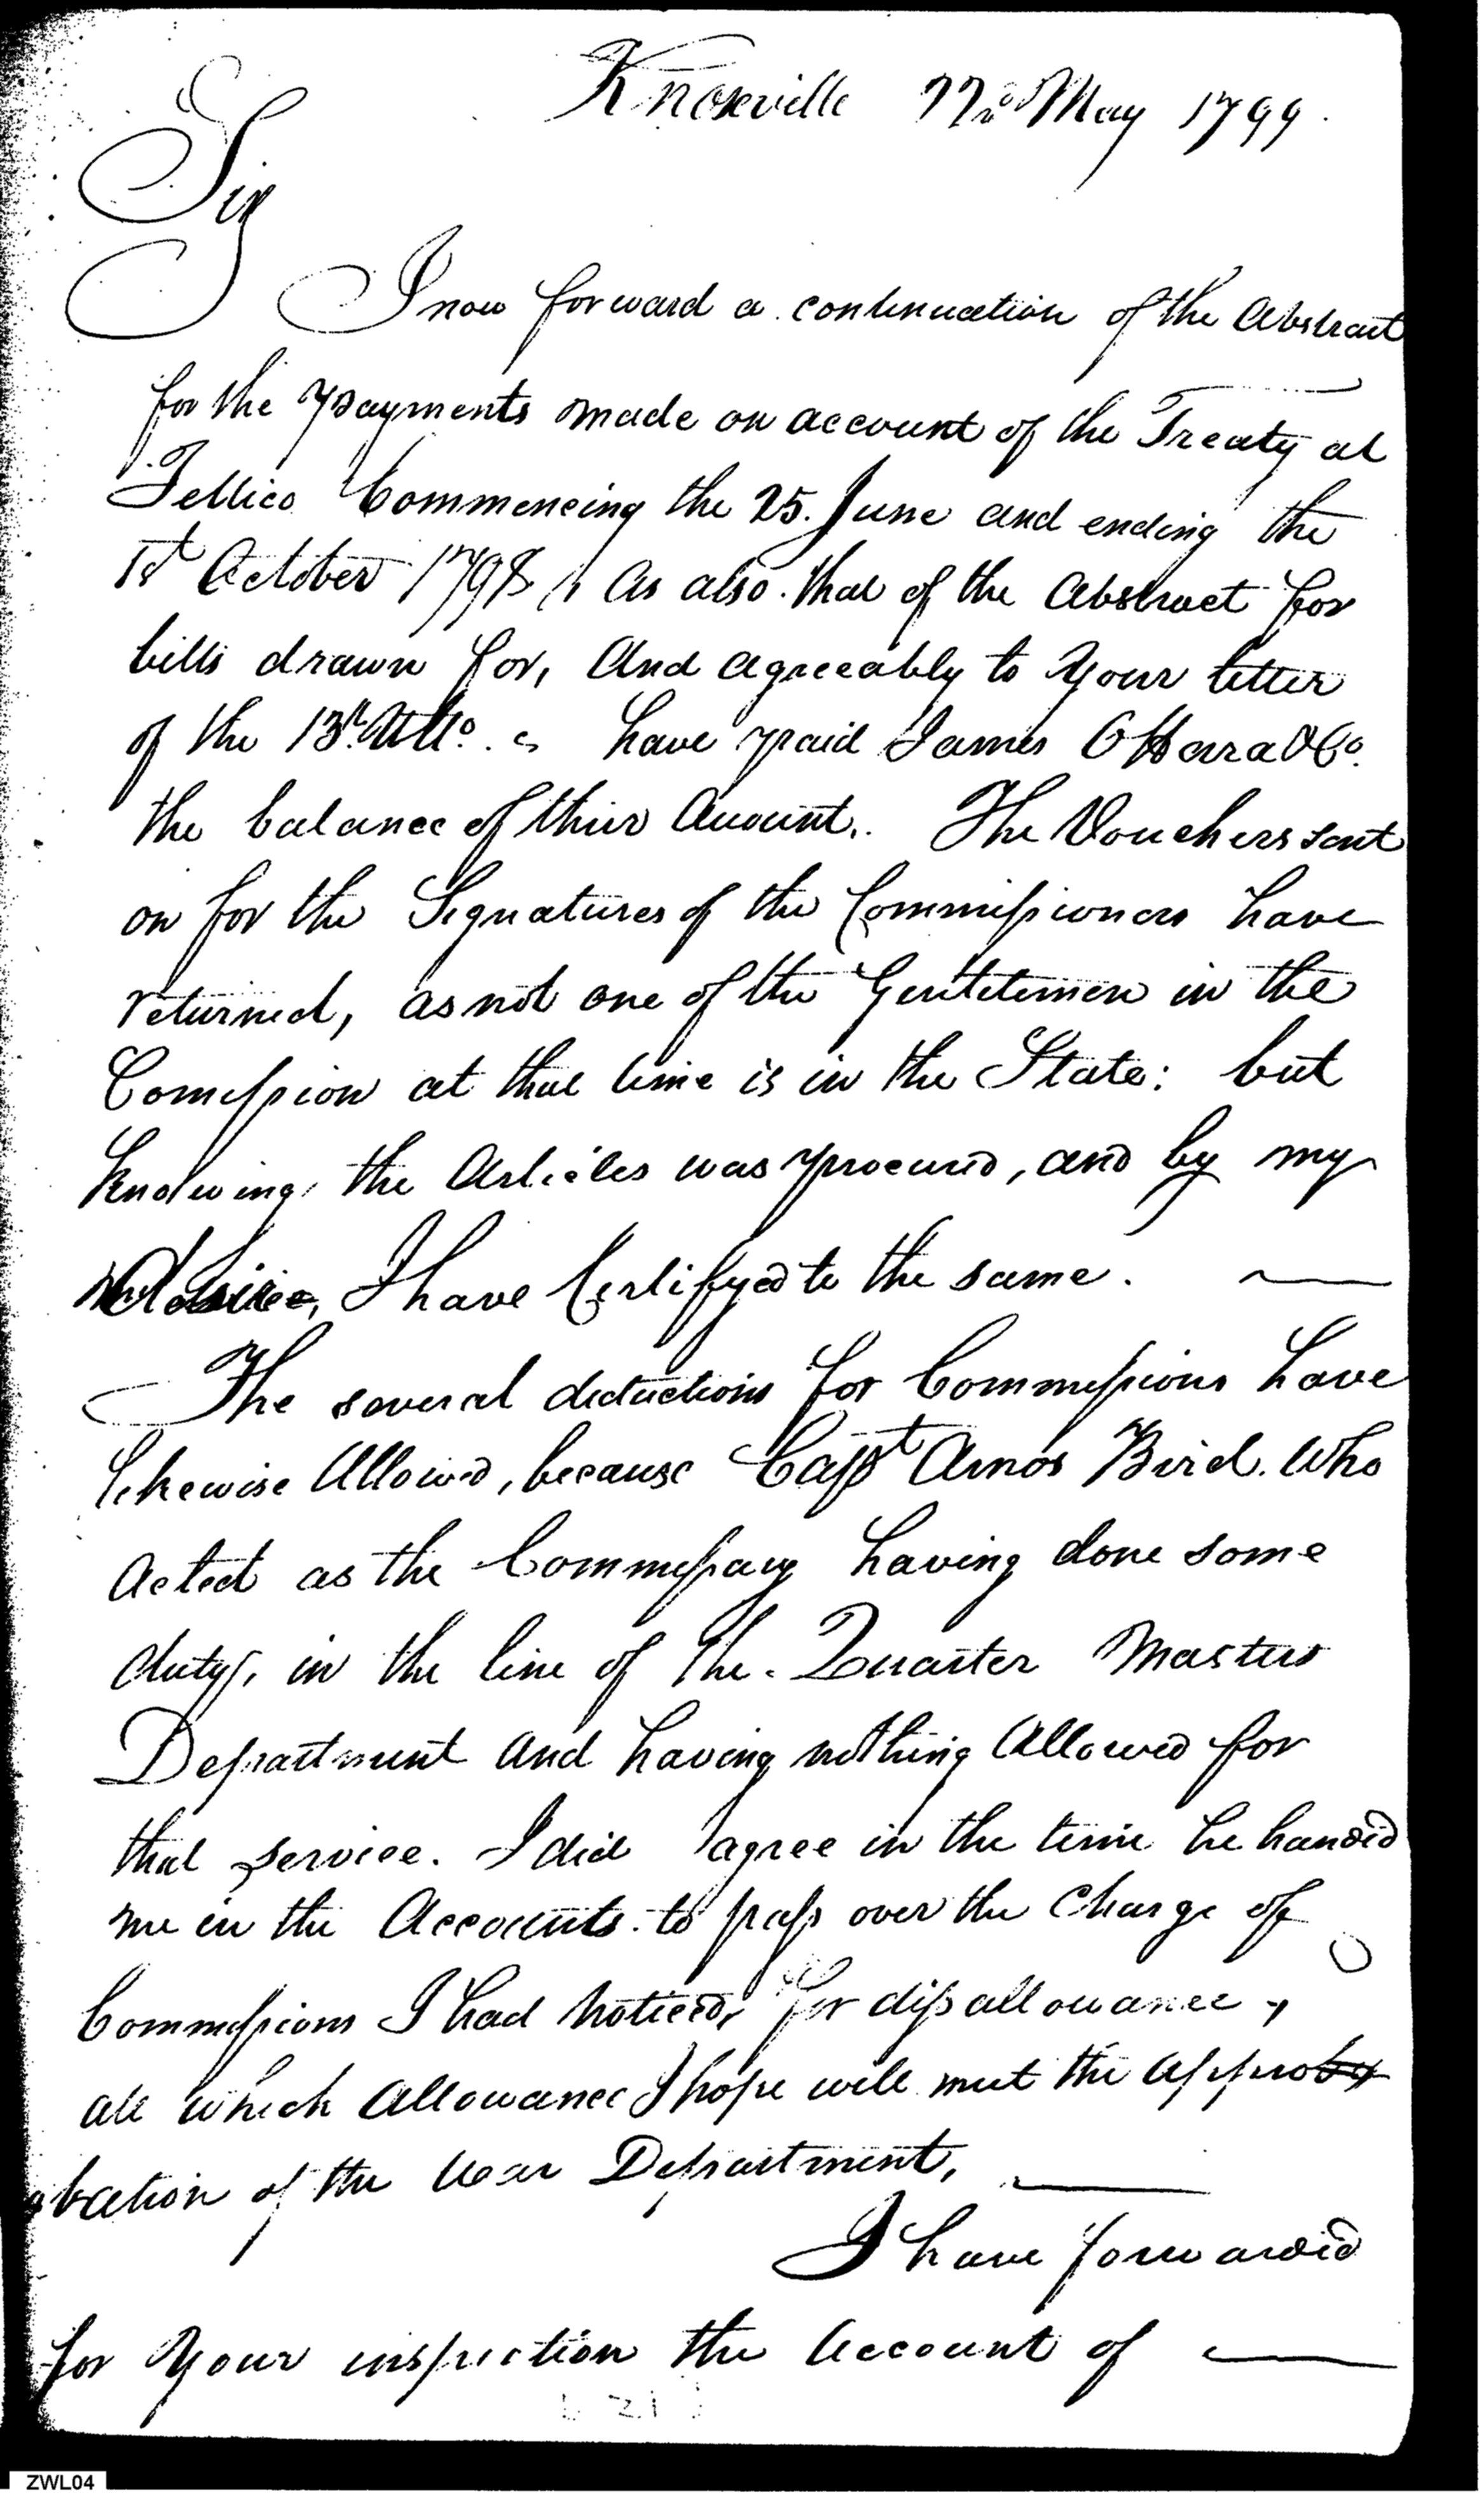 Knoxville 22d May 1799.
Sir
I now forward a continuation of the Abstract
for the payments made on account of the Treaty at
Tellico Commencing the 25. June and ending the
1st October 1798, As also that of the Abstract for
bills drawn for, And agreeably to Your letter
of the 13th Ulto. have paid James OHarra & Co.
the balance of thier Amount. The Vouchers sent
on for the Signatures of the Commissioners have
returned, as not one of the Gentletemen in the
Comission at that time is in the State: but
Knowing the Articles was procured, and by my
I have Certifyed to the same.
The several deductions for Commissions have
likewise Allowed, because Capt Amos Bird. Who
Acted as the Commissary having done some
duty, in the line of the Quarter Masters
Department and having nothing Allowed for
that service. I did agree in the time he handed
me in the Accounts to pass over the Charge of
Commissions I had noticed, for dissallowance,
all which Allowance I hope will meet the appro
obation of the War Department,
I have forwarded
for Your inspection the Account of
ZWL04